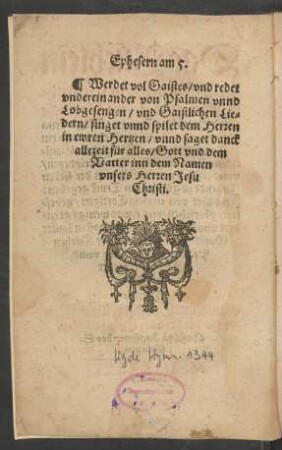 Ephesern am 5.
¶ Werdet vol Gaistes/vnd redet
vndereinander von Psalmen vnnd
Lobgesengen/vnd Gaistlichen Lie-
dern/singet vnnd spilet dem Herren
in ewren Hertzen/vnnd saget danck
allezeit für alles/Gott vnd dem
Vatter inn dem Namen
vnsers Herren Jesu
Christi.
Hymn. 1344